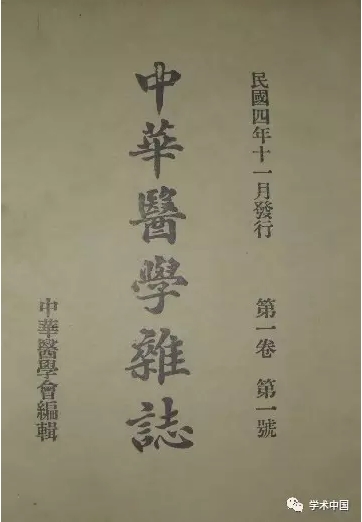 民國四年十一月發行 第一卷 第一號
中華醫學雜誌
中華醫學會編輯
学术中国